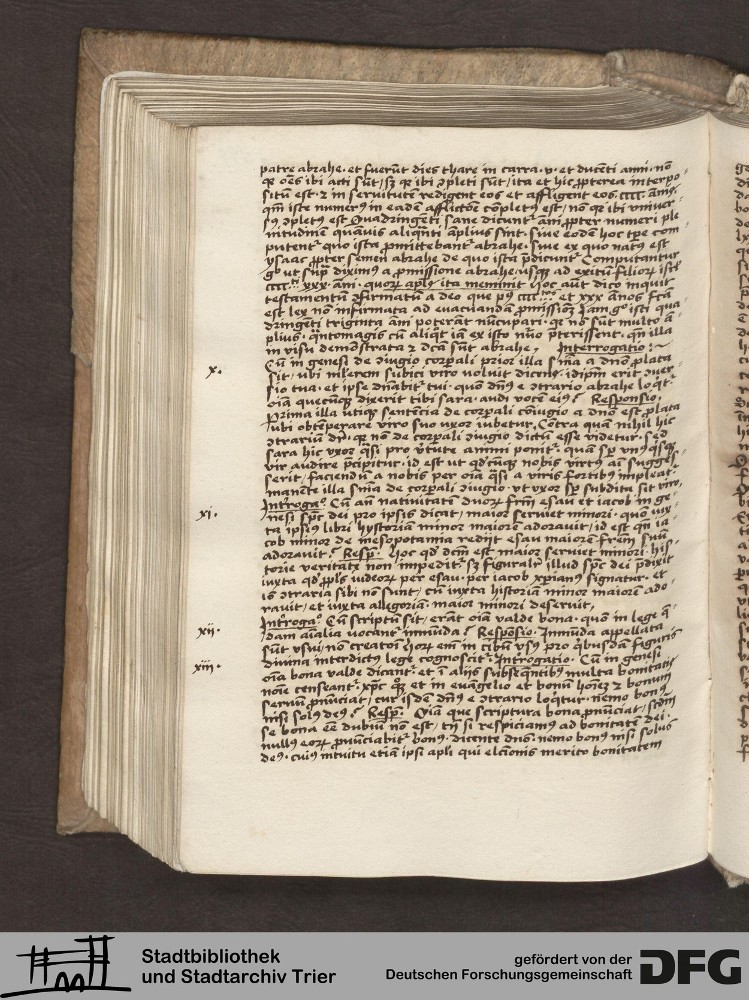 patre abrahe · et fuerūt dies thare in carra · v · et ducēti anni · nō
q̄ oēs ibi acti sūt / sȝ q̄ ibi ɔpleti sūt / ita et hic ꝓpterea interpo
situ est · ⁊ in seruitutē redigent eos et affligent eos · cccc · ānis
qm̄ iste numerꝰ in eadē afflictōe cōpletꝰ est / nō q̄ ibi vniuer
sꝰ ɔpletꝰ est Quadringēti sane dicunt᷑ āni ꝓpter numeri ple
nitudinē quāuis aliqn̄ti āplius sint · siue eodē hoc tp̄e com
putent᷑ quo ista ꝓmittebant᷑ abrahe · siue ex quo natꝰ est
ysaac ꝓpter semen abrahe de quo ista p̄dicunt᷑ Computantur
gͦ ut sup͛ diximꝰ a ꝓmissione abrahe usqȝ ad exitū filioꝝ isrl̄
cccc · xxx · āni · quoꝝ aplꝰ ita meminit hoc aūt dico inquit
testamentū ɔfirmatū a deo que pꝰ cccc et xxx ānos fc̄a
est lex nō infirmata ad euacuandā ꝓmissioȝ Iam gͦ isti qua
dringēti triginta āni poterāt nūcupari · qͥ nō sūt multo ā
plius · qͣntomagis cū aliqͣt iā ex isto nūo p̄terissent · qn̄ illa
in visu demōstrata ⁊ dc̄a sūt abrahe · Interrogatio :~
x · Cū in genesi de ɔiugio corꝑali prior illa sn̄ia a dn̄o plata
sit / ubi mlierem subici viro voluit dicens · ad ip̄m erit ɔuer
sio tua · et ipse dn̄abit᷑ tui · quō dn̄ꝰ e ɔtrario abrahe loqͥt᷑
oīa quecūqȝ dixerit tibi sara · audi vocē eiꝰ ? Responsio ·
Prima illa utiqȝ sentēcia de corꝑali cōiugio a dn̄o est ꝓlata
ubi obtēperare viro suo uxor iubetur · Cōtra quā nihil hic
ɔtrariū dr̄ · qͥ nō de corꝑali ɔiugio dictū esse videtur · sed
sara hic vxor qͣsi pro v̓tute animi ponit᷑ · quā sꝑ vnꝰqͥsqȝ
vir audire p̄cipitur · id est ut qd̓cūqȝ nobis virtꝰ āi sugges
serit / faciendū a nobis per oīa qͣsi a viris fortibꝰ impleat᷑ ·
manēte illa sn̄ia de corꝑali ɔiugio · vt vxor sꝑ subdita sit viro /
xi · Int̓roga᷑ Cū an̄ natiuitatē duoꝝ frm̄ esau et iacob in ge
nesi sp̄c dei pro ipsis dicat / maior seruiet minori · quō iux
ta ipsiꝰ libri hystoriā minor maiorē adorauit / id est qn̄ ia
cob minor de mesopotamia redijt esau maiorē fr̄em suū
adorauit ? Resp᷑ · hoc qd̓ dc̄m est maior seruiet minori · his
torie veritatē non impedit · sȝ figuralit᷑ illud sp̄c dei p̄dixit
iuxta qd̓ ppls̄ iudeoꝝ per esau · per iacob xp̄ianꝰ signatur · et
iō ɔtraria sibi nō sunt / cū iuxta historiā minor maiorē ado
rauit / et iuxta allegoriā maior minori deseruit /
xii · Int̓roga᷑ Cū scriptū sit / erāt oīa valde bona · quō in lege qͣ
dam aīalia vocant᷑ inmūda ? Respōsio · Inmūda appellata
sūt usui / nō creatōi hoꝝ em̄ in cibū vsꝰ pro qͥbusdā figuris
xiii · diuina interdictꝰ lege cognoscit᷑ · Interrogatio · Cū in genesi
oīa bona valde dicant᷑ · et ī aliis subseqͣntibꝰ multa bonitatis
noīe censeant᷑ · xp̄c qͦȝ et in euāgelio et bonū hoīeȝ ⁊ bonum
seruū pnūciat / cur isdē dn̄ꝰ e ɔtrario loqͥtur · nemo bonꝰ
nisi solꝰ deꝰ ? Resp᷑ · Oīa que scriptura bona pnūciat / scdm̄
se bona eē dubiū nō est / tn̄ si respiciamꝰ ad bonitatē dei ·
nullꝰ eoꝝ pnūciabit᷑ bonꝰ · dicente dn̄o · nemo bonꝰ nisi solus
deꝰ · cuiꝰ intuitu etiā ipsi apli qui elc̄ionis merito bonitatem
Stadtbibliothek
und Stadtarchiv Trier
gefördert von der
Deutschen Forschungsgemeinschaft
DFG